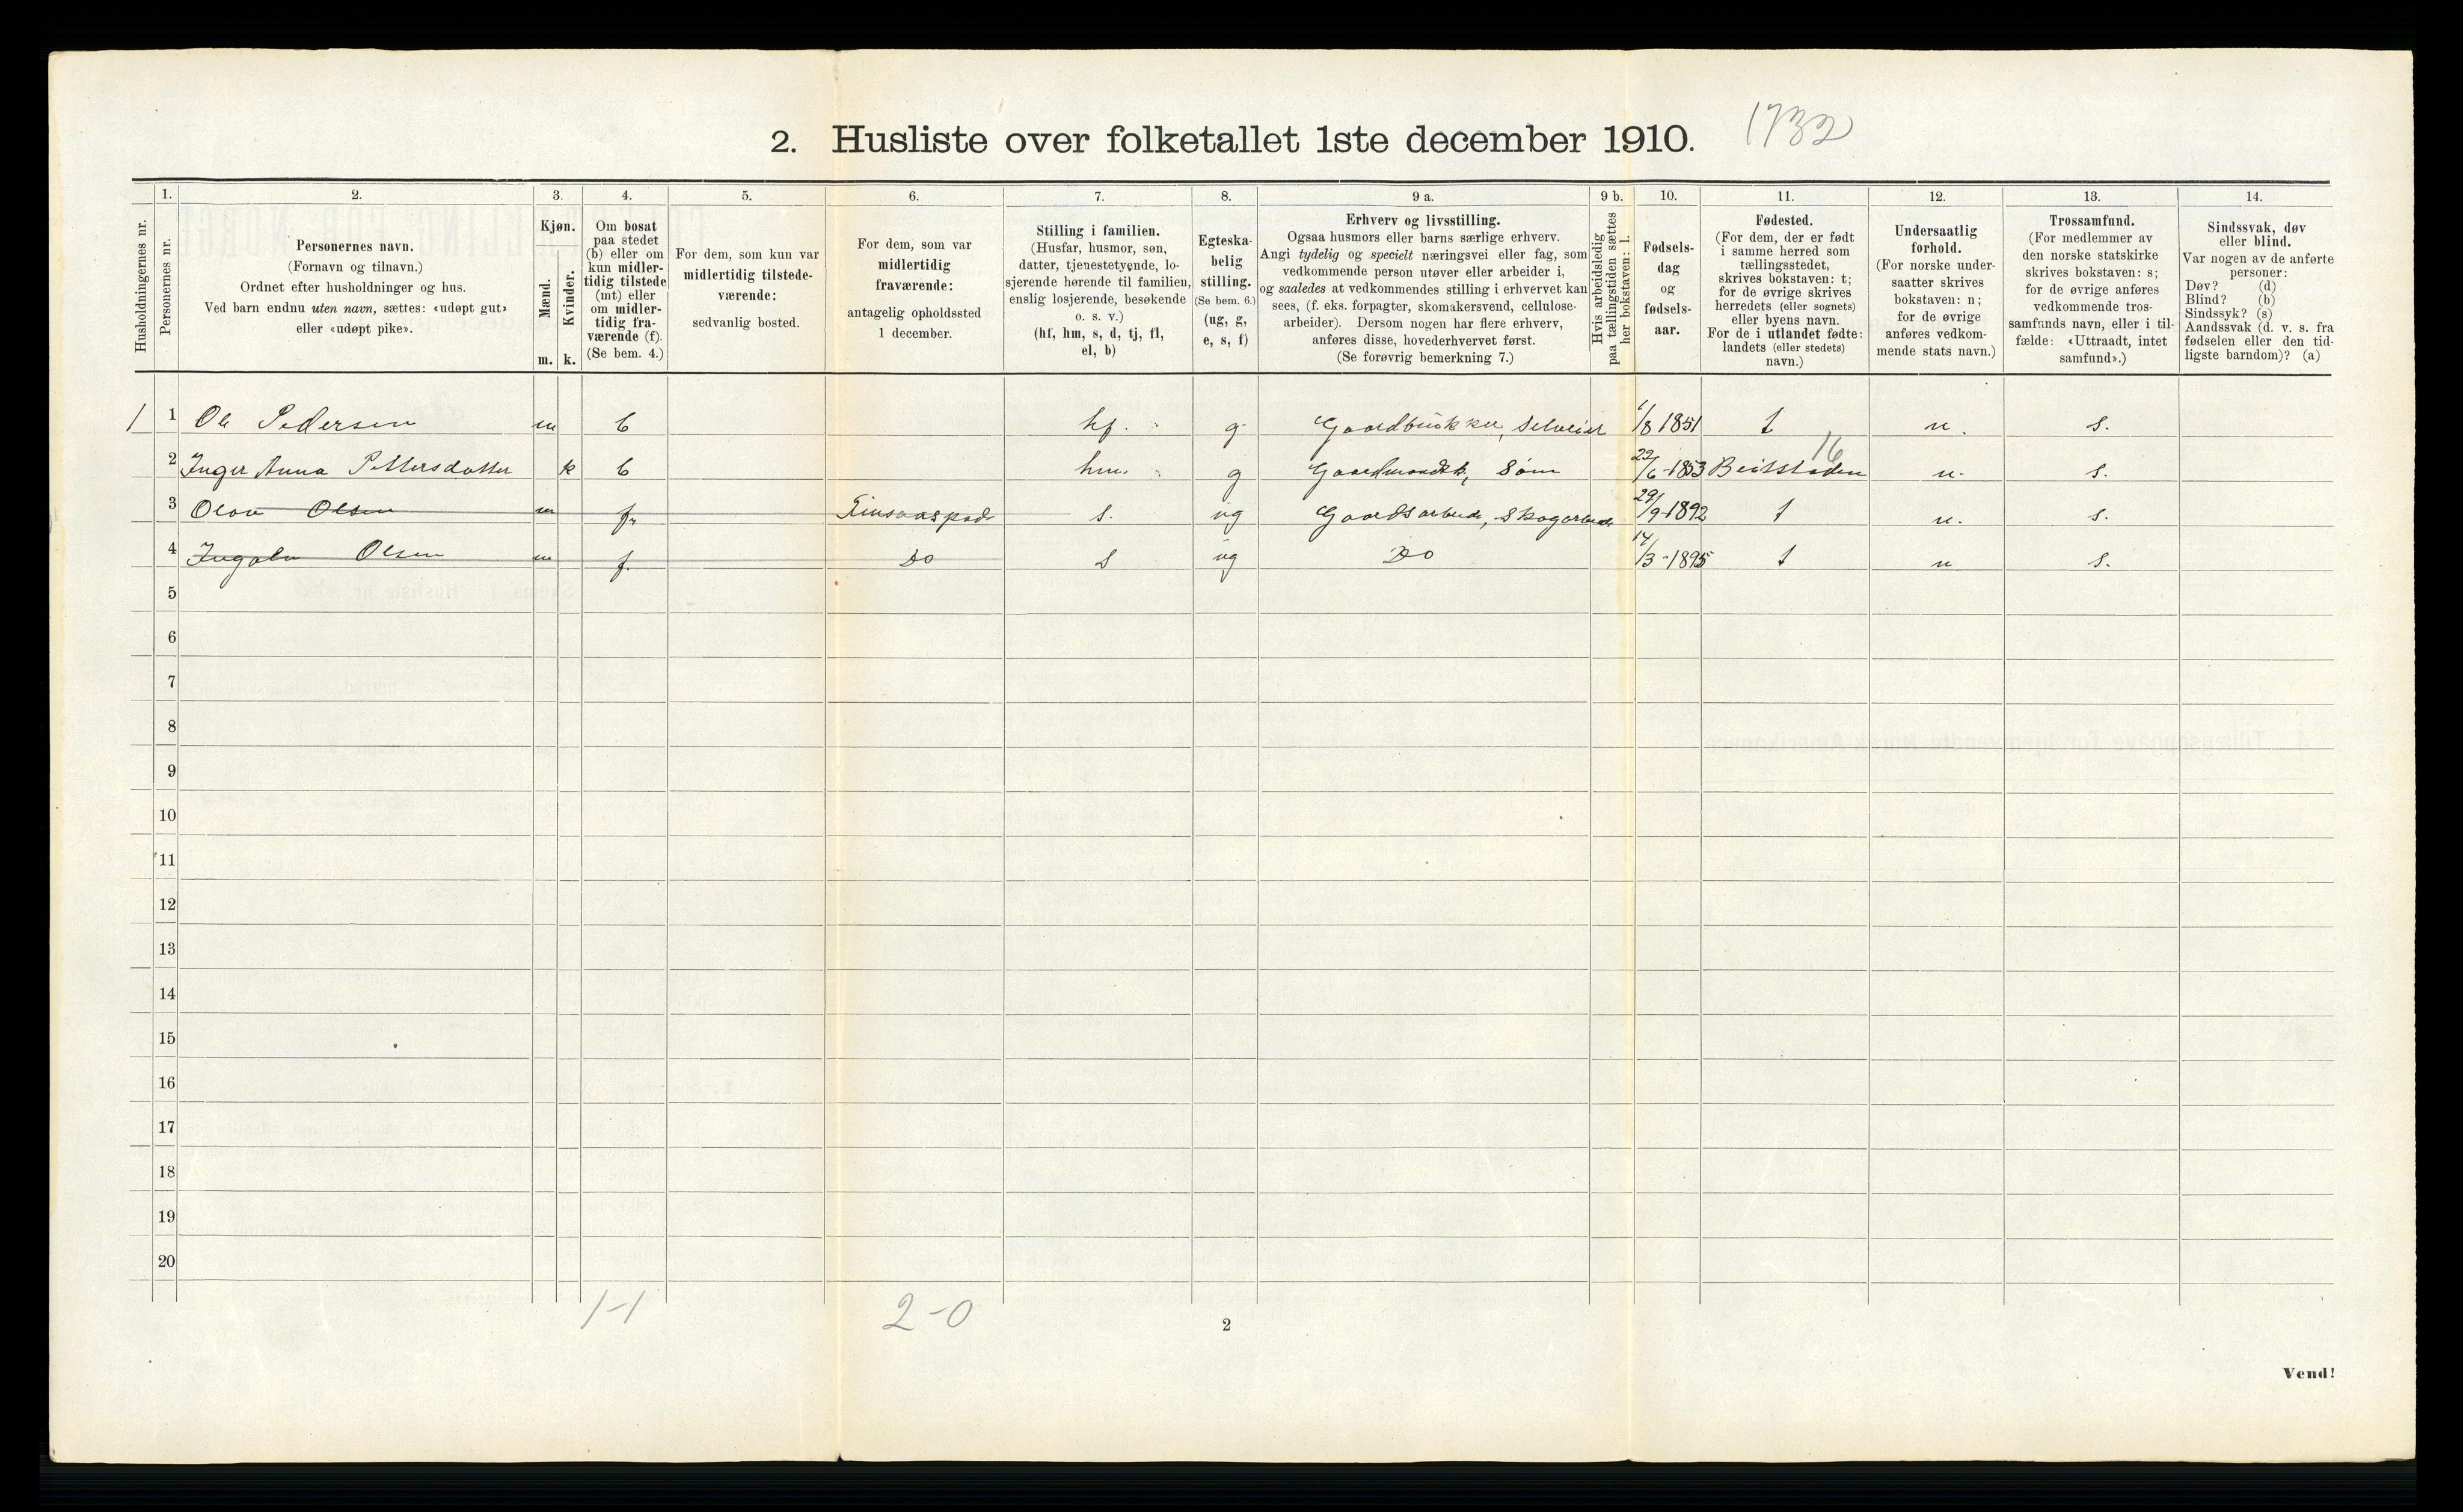 2. Husliste over folketallet 1ste december 1910. 1732
1. 2. 3. 4. 5. 6. 7. 8. 9 a. 9 b. 10. 11. 12. 13. 14.
Husholdningernes nr.
Personernes nr.
Personernes navn.
(Fornavn og tilnavn.)
Ordnet efter husholdninger og hus.
Ved barn endnu uten navn, sættes: «udøpt gut»
eller «udøpt pike».
Kjøn.
Mænd.
Kvinder.
m. k.
Om bosat
paa stedet
(b) eller om
kun midler-
tidig tilstede
(mt) eller
om midler-
tidig fra-
værende (f).
(Se bem. 4.)
For dem, som kun var
midlertidig tilstede-
værende:
sedvanlig bosted.
For dem, som var
midlertidig
fraværende:
antagelig opholdssted
1 december.
Stilling i familien.
(Husfar, husmor, søn,
datter, tjenestetyende, lo-
sjerende hørende til familien,
enslig losjerende, besøkende
o. s. v.)
(hf, hm, s, d, tj, fl,
el, b)
Egteska-
belig
stilling.
(Se bem. 6.)
(ug, g,
e, s, f)
Erhverv og livsstilling.
Ogsaa husmors eller barns særlige erhverv.
Angi tydelig og specielt næringsvei eller fag, som
vedkommende person utøver eller arbeider i,
og saaledes at vedkommendes stilling i erhvervet kan
sees, (f. eks. forpagter, skomakersvend, cellulose-
arbeider). Dersom nogen har flere erhverv,
anføres disse, hovederhvervet først.
(Se forøvrig bemerkning 7.)
Hvis arbeidsledig
paa tællingstiden sættes
her bokstaven: l.
Fødsels-
dag
og
fødsels-
aar.
Fødested.
(For dem, der er født
i samme herred som
tællingsstedet,
skrives bokstaven: t;
for de øvrige skrives
herredets (eller sognets)
eller byens navn.
For de i utlandet fødte:
landets (eller stedets)
navn.)
Undersaatlig
forhold.
(For norske under-
saatter skrives
bokstaven: n;
for de øvrige
anføres vedkom-
mende stats navn.)
Trossamfund.
(For medlemmer av
den norske statskirke
skrives bokstaven: s;
for de øvrige anføres
vedkommende tros-
samfunds navn, eller i til-
fælde: «Uttraadt, intet
samfund».)
Sindssvak, døv
eller blind.
Var nogen av de anførte
personer:
Døv? (d)
Blind? (b)
Sindssyk? (s)
Aandssvak (d. v. s. fra
fødselen eller den tid-
ligste barndom)? (a)
1 1 Ole Pedersen m b hf. g Gaardbruker, Selveier 1/8 1851 t n. s.
2 Inger Anna Pettersdatter k b hm. g Søm 22/6-1853 Beitstaden 16 n. s.
3 Olav Olsen m f. s. ug Gaardsarbeide, Skogarbeide 29/9-1892 t n. s.
4 Olsen m f. Do s ug Do 14/3-1895 t n s.
5
6
7
8
9
10
11
12
13
14
15
16
17
18
19
20
1-1 2-0
2
Vend!